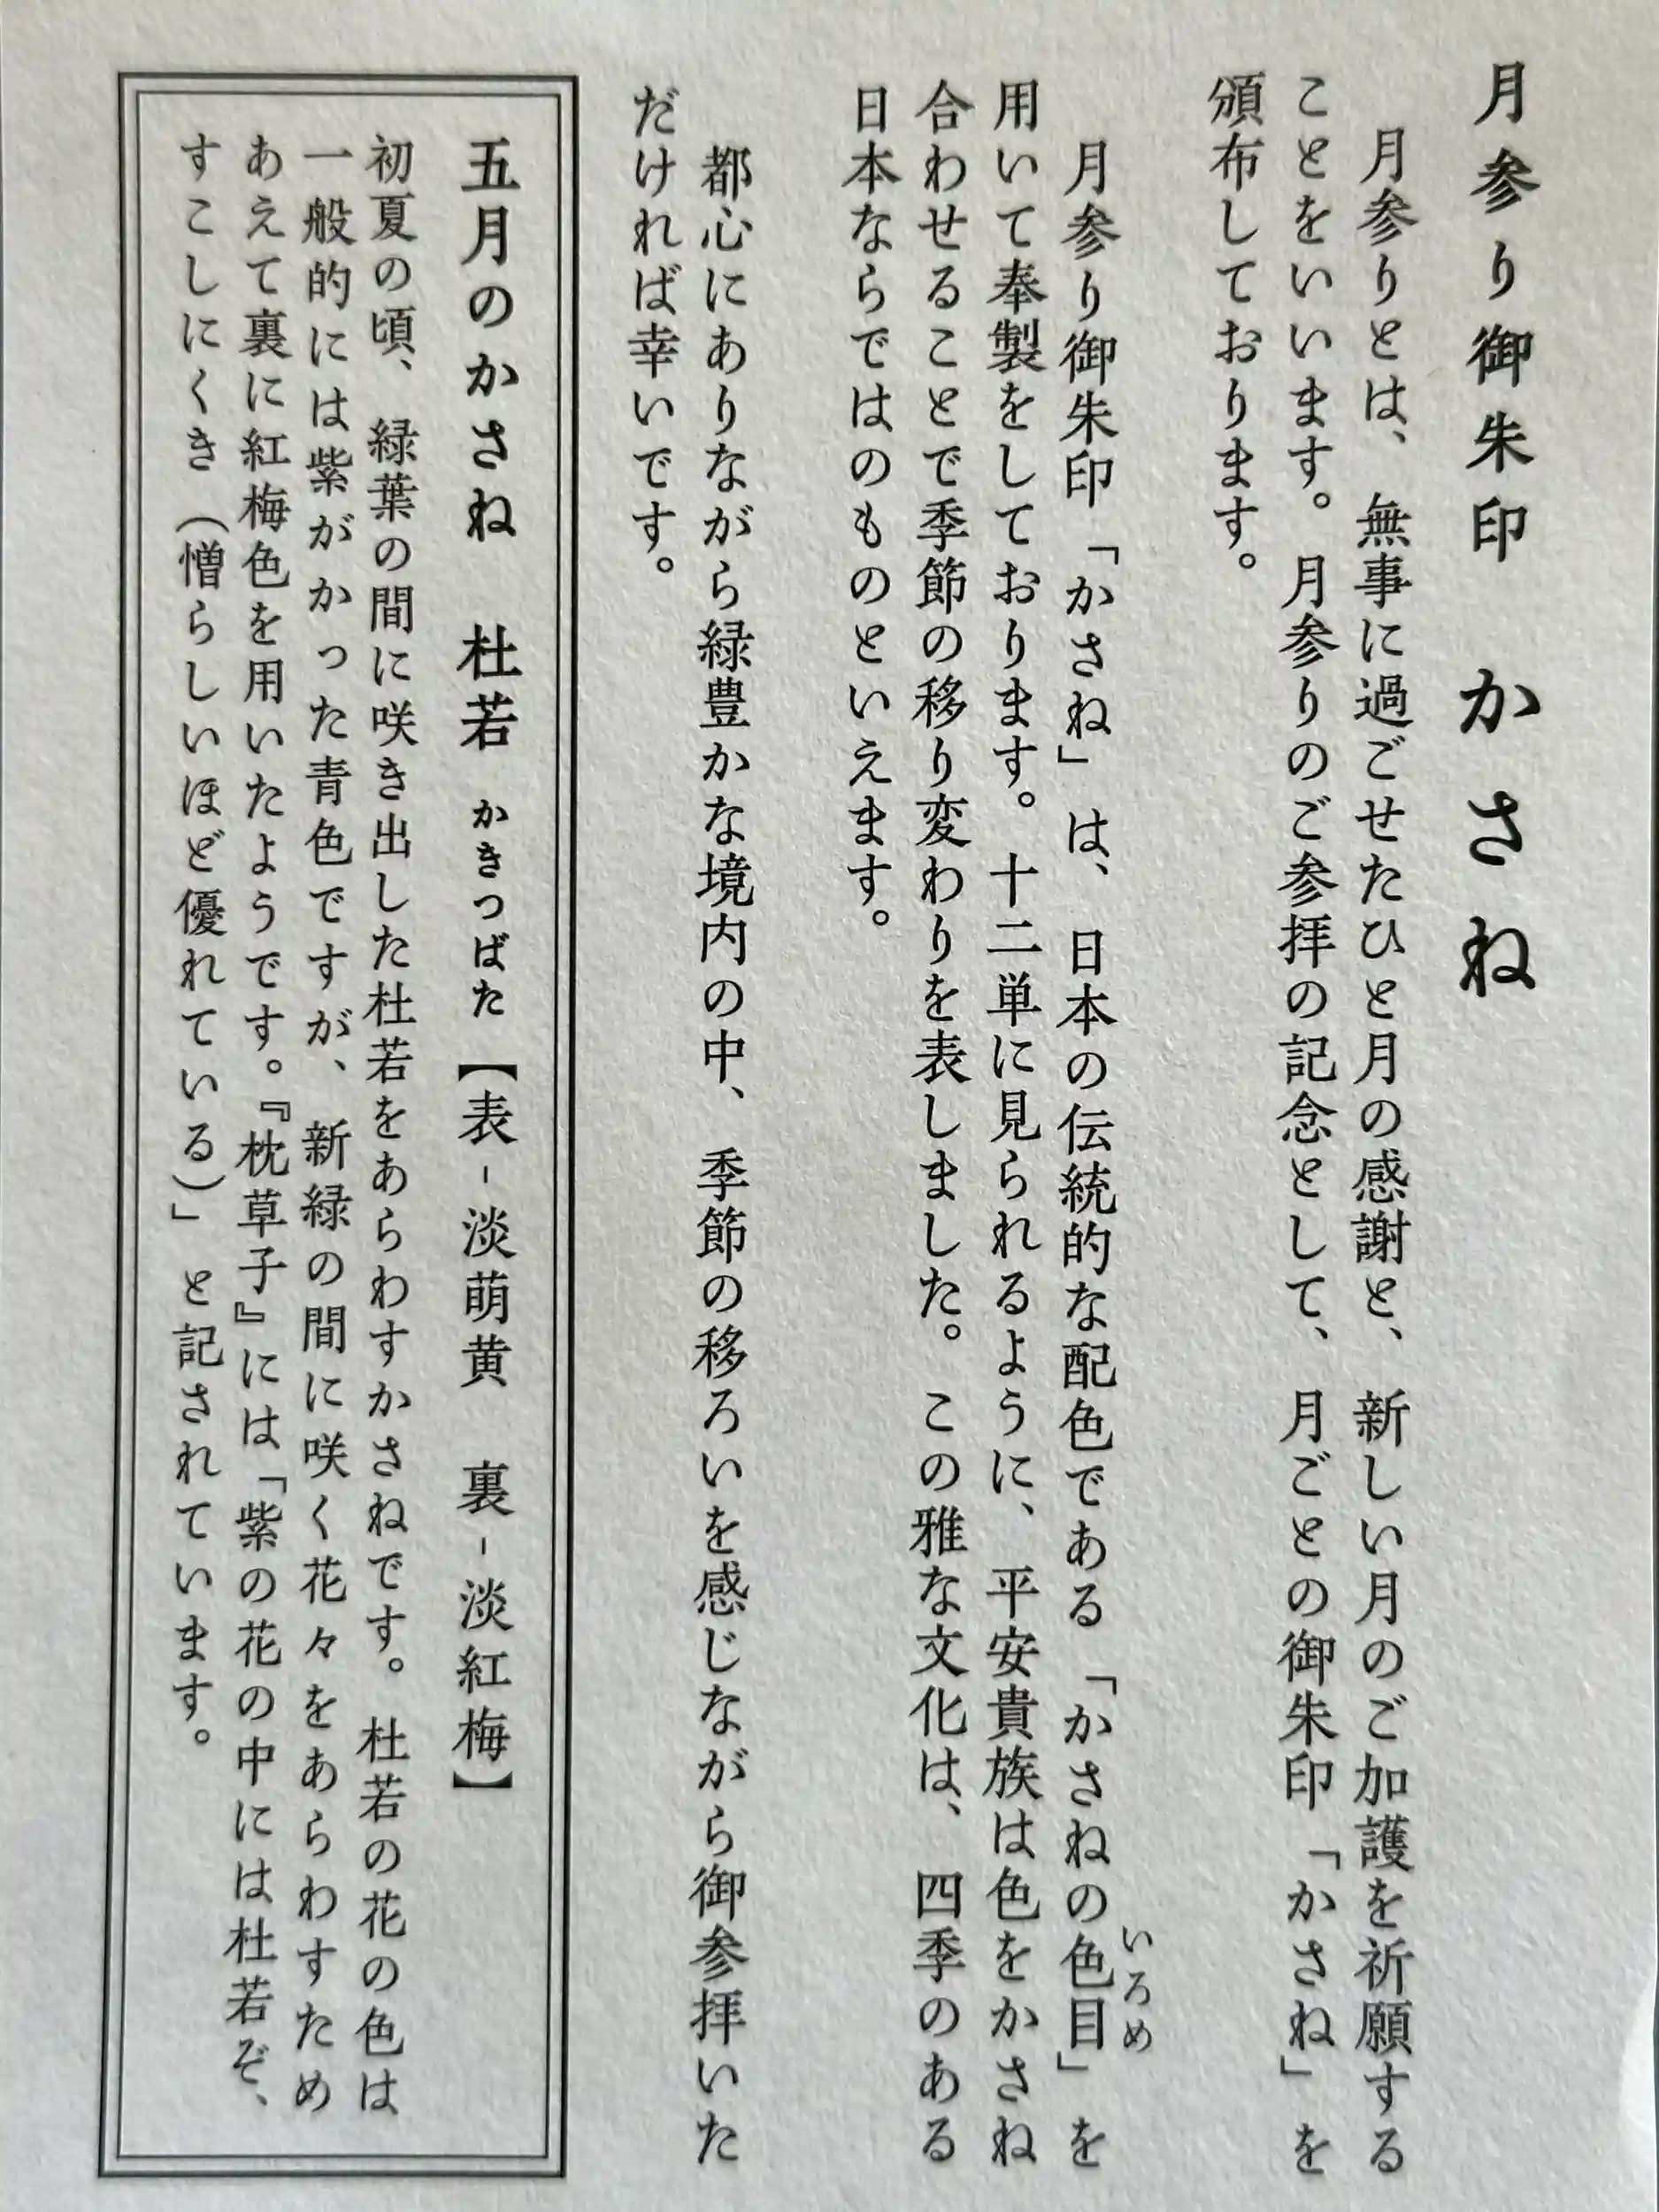 月参り御朱印　かさね
月参りとは、無事に過ごせたひと月の感謝と、新しい月のご加護を祈願する
ことをいいます。月参りのご参拝の記念として、月ごとの御朱印「かさね」を
頒布しております。
月参り御朱印「かさね」は、日本の伝統的な配色である「かさねの色目」を
いろめ
用いて奉製をしております。十二単に見られるように、平安貴族は色をかさね
合わせることで季節の移り変わりを表しました。この雅な文化は、四季のある
日本ならではのものといえます。
都心にありながら緑豊かな境内の中、季節の移ろいを感じながら御参拝いた
だければ幸いです。
五月のかさね　杜若　かきつばた【表-淡萌黄　裏-淡紅梅】
初夏の頃、緑葉の間に咲き出した杜若をあらわすかさねです。杜若の花の色は
一般的には紫がかった青色ですが、新緑の間に咲く花々をあらわすため
あえて裏に紅梅色を用いたようです。『枕草子』には「紫の花の中には杜若ぞ、
すこしにくき（憎らしいほど優れている）」と記されています。